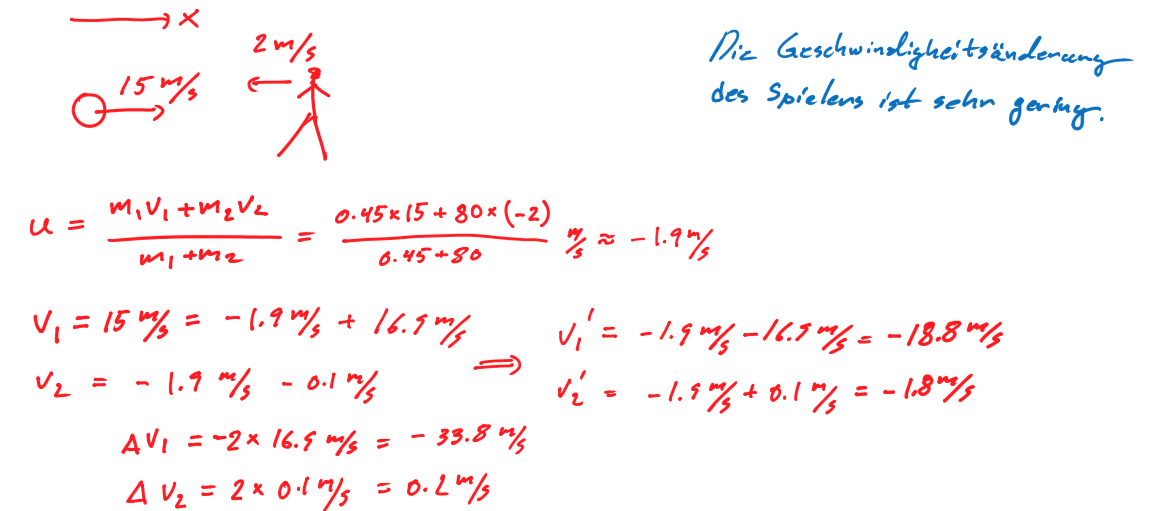 x
2 m/s
15 m/s
Die Geschwindigkeitsänderung
des Spielers ist sehr gering.
u = (m₁v₁ + m₂v₂)/(m₁ + m₂) = (0.45 × 15 + 80 × (-2))/(0.45 + 80) m/s ≈ -1.9 m/s
V₁ = 15 m/s = -1.9 m/s + 16.9 m/s
V₂ = -1.9 m/s - 0.1 m/s
⇒
V₁' = -1.9 m/s - 16.9 m/s = -18.8 m/s
V₂' = -1.9 m/s + 0.1 m/s = -1.8 m/s
ΔV₁ = -2 × 16.9 m/s = -33.8 m/s
ΔV₂ = 2 × 0.1 m/s = 0.2 m/s